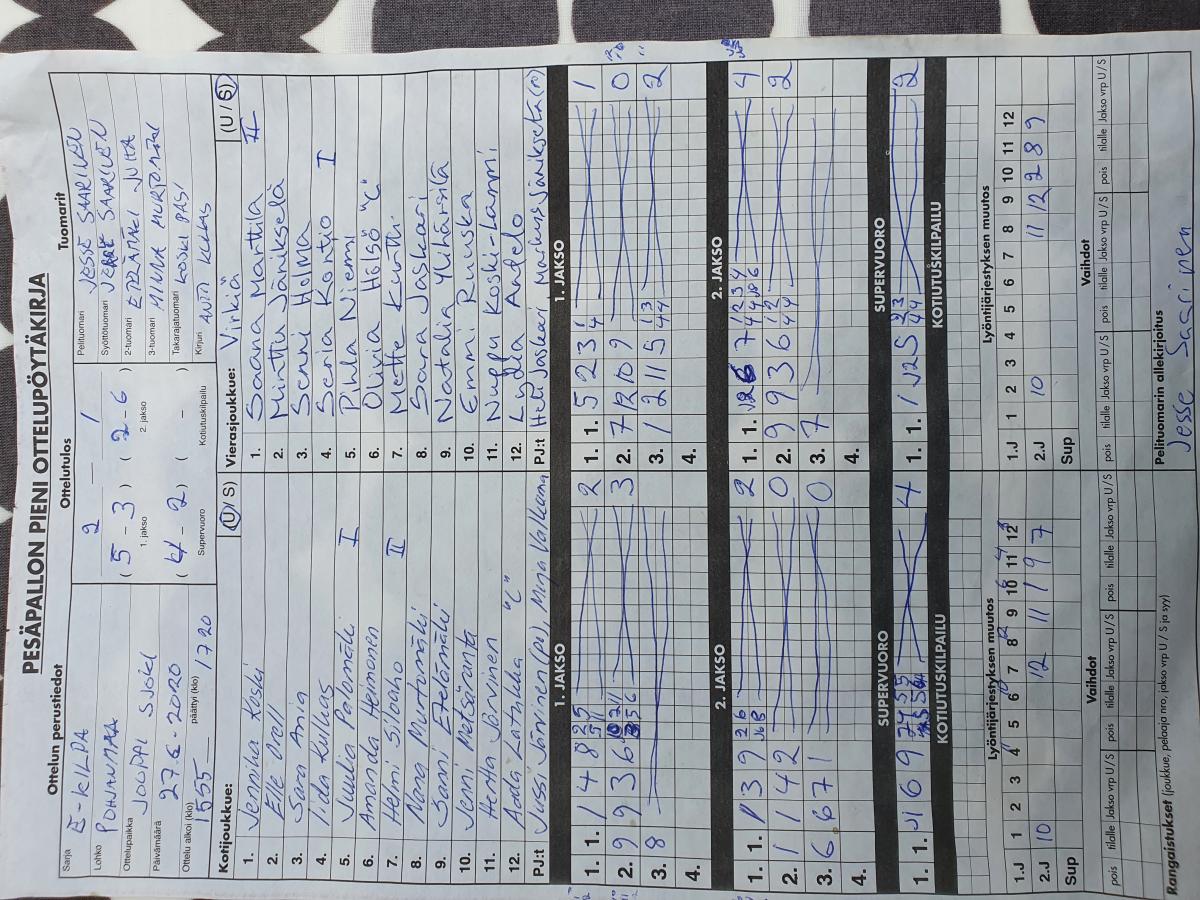 PESÄPALLON PIENI OTTELUPÖYTÄKIRJA
Ottelun perustiedot
Sarja E-KILPA
Lohko POHJANMAA
Ottelupaikka JOUPPI SJOKI
Päivämäärä 27.6-2020
Ottelu alkoi (klo) 1555 päättyi (klo) 1720
Ottelutulos
2 — 1
( 5 - 3 ) ( 2 - 6 )
1. jakso 2. jakso
( 4 - 2 ) ( - )
Supervuoro Kotiutuskilpailu
Tuomarit
Pelituomari JESSE SAARINEN
Syöttötuomari JERE SAARINEN
2-tuomari ETELÄMÄKI JUHA
3-tuomari MINNA MURTOMÄKI
Takarajatuomari KOSKI PASI
Kirjuri ANTI KULKAS
Kotijoukkue: (U / S)
1. Jennika Koski
2. Elle Proll
3. Sara Ania
4. Iida Kulkas
5. Juulia Palomäki I
6. Amanda Heimonen
7. Helmi Silvaho II
8. Nona Murtomäki
9. Sanni Etelämäki
10. Jenni Metsäranta
11. Hertta Järvinen
12. Aada Latukka "C"
PJ:t Jussi Järvinen (pv), Minja Valkama
Vierasjoukkue: Virkiä (U / S)
1. Saana Marttila II
2. Minttu Jänikselä
3. Senni Holma
4. Seria Kontio I
5. Pihla Niemi
6. Olivia Hölsö "C"
7. Mette Kuntti
8. Saara Jaskari
9. Natalia Ylihärsilä
10. Emmi Ruuska
11. Nuppu Koski-Lammi
12. Lydia Antelo
PJ:t Heti Jaskari
1. JAKSO
1. 1. 1 4 8 2
2. 9 9 3 6 3
3. 8
4.
1. JAKSO
1. 1. 5 2 3 1
2. 7 12 10 9 0
3. 1 2 11 5 2
4.
2. JAKSO
1. 1. 3 9 2
2. 1 1 4 2 0
3. 6 6 7 1 0
4.
2. JAKSO
1. 1. 7 4
2. 9 9 3 6 2
3. 7
4.
SUPERVUORO
1. 1. 6 9 4
SUPERVUORO
1. 1. 1 12 5 2
KOTIUTUSKILPAILU
KOTIUTUSKILPAILU
Lyöntijärjestyksen muutos
1.J 1 2 3 4 5 6 7 8 9 10 11 12
2.J 10 12 11 1 9 7
Sup
Lyöntijärjestyksen muutos
1.J 1 2 3 4 5 6 7 8 9 10 11 12
2.J 10 11 12 2 8 9
Sup
Vaihdot
pois tilalle Jakso vrp U / S pois tilalle Jakso vrp U / S pois tilalle Jakso vrp U / S
Vaihdot
pois tilalle Jakso vrp U / S pois tilalle Jakso vrp U / S pois tilalle Jakso vrp U / S
Rangaistukset (joukkue, pelaaja nro, jakso vrp U / S ja syy)
Pelituomarin allekirjoitus
Jesse Saarinen